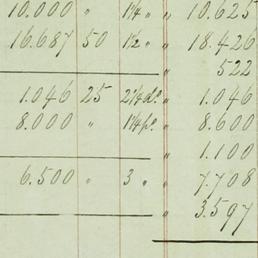 10.000 " 1¼ " " 10.625
16.687 50 1½ " " 18.426
" 522
1.046 25 2¼ do. " 1.046
8.000 " 1¼ po. " 8.600
" 1.100
6.500 " 3 " " 7.708
" 3.597